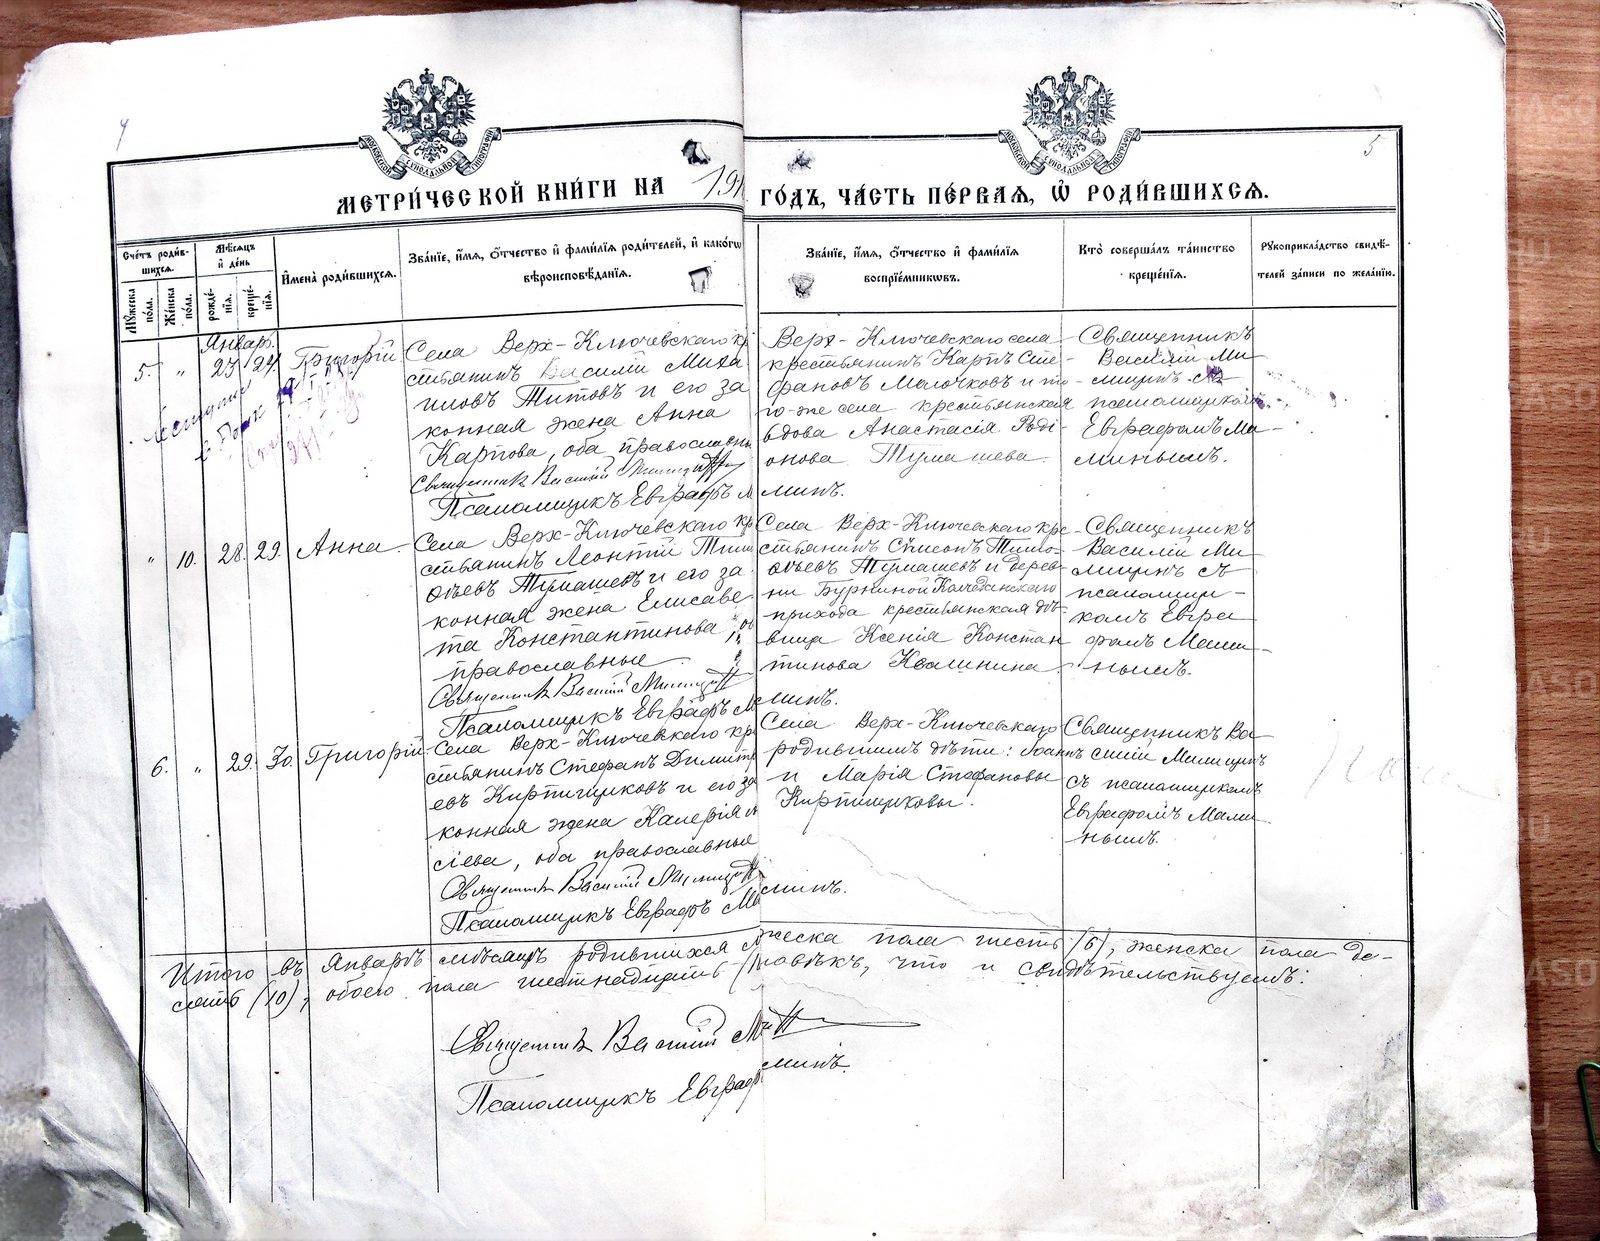 4
5
МЕТРИ́ЧЕСКОЙ КНИ́ГИ НА 191
ГО́ДЪ, ЧА́СТЬ ПЕ́РВАЯ, Ѡ҆ РОДИ́ВШИХСЯ.
Сче́тъ роди́вшихся.
Мѣ́сяцъ и҆ де́нь
И҆мена̀ роди́вшихся.
Зва́нїе, и҆́мя, ѻ҆́тчество и҆ фами́лїя роди́телей, и҆ како́гѡ
вѣроисповѣ́данїя.
Зва́нїе, и҆́мя, ѻ҆́тчество и҆ фами́лїя
воспрїе́мниковъ.
Кто̀ соверша́лъ та́инство
креще́нїя.
Рꙋкоприкла́дство свидѣ́-
телей за́писи по жела́нїю.
Мꙋ́жеска по́ла.
Же́нска по́ла.
рожде́нїя.
креще́нїя.
Январь.
5. " 23 24. Григорій
Села Верх-Ключевскаго кр
стьянинъ Василій Миха
иловъ Титовъ и его за
конная жена Анна
Карпова, оба православны
Священник Василій
Псаломщикъ Евграфъ Ма
минъ.
Верх-Ключевскаго села
крестьянинъ Карпъ Сте-
фановъ Молочковъ и то-
го-же села крестьянская
вдова Анастасія Роді-
онова Тумашева.
Священникъ
Василій Ми-
лицинъ съ
псаломщикомъ
Евграфомъ Ма-
минымъ.
" 10. 28. 29. Анна.
Села Верх-Ключевскаго кр
стьянинъ Леонтій Тимо
ѳеевъ Тумашевъ и его за
конная жена Елисаве
та Константинова, об
православные.
Священник Василій
Псаломщикъ Евграфъ Ма
минъ.
Села Верх-Ключевскаго кре-
стьянинъ Сѵмеонъ Тимо-
ѳеевъ Тумашевъ и дерев-
ни Бурниной Колчеданскаго
прихода крестьянская дѣ-
вица Ксенія Констан
тинова Квашнина.
Священникъ
Василій Ми-
лицинъ съ
псаломщи-
комъ Евгра
фомъ Мами-
нымъ.
6. " 29. 30. Григорій
Села Верх-Ключевскаго кр
стьянинъ Стефанъ Димитр
евъ Кирпищиковъ и его за
конная жена Калерія
сіева, оба православные
Священник Василій
Псаломщикъ Евграфъ Ма
минъ.
Села Верх-Ключевскаго
родившимъ дѣти: Іоаннъ
и Марія Стефановы
Кирпищиковы.
Священникъ Ва
силій Милицинъ
съ псаломщикомъ
Евграфомъ Мами
нымъ.
Итого въ Январѣ мѣсяцѣ родившихся мужеска пола шесть (6), женска пола де-
сять (10), обоего пола шестнадцать человѣкъ, что и свидѣтельствуемъ:
Священник Василій
Псаломщикъ Евграфъ
минъ.